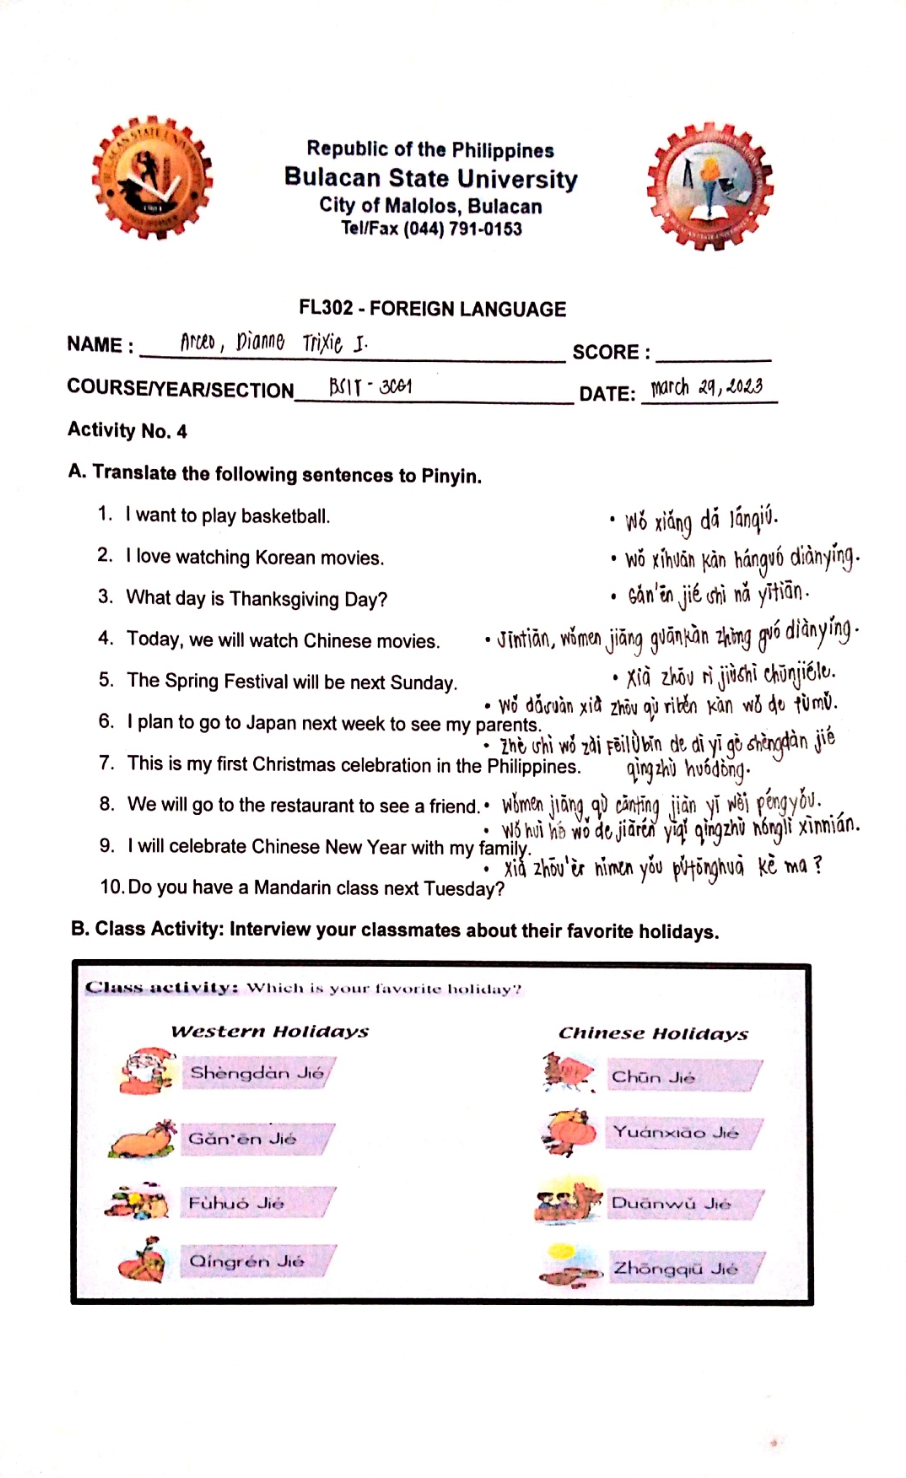 Republic of the Philippines
Bulacan State University
City of Malolos, Bulacan
Tel/Fax (044) 791-0153
FL302 - FOREIGN LANGUAGE
NAME : Arceo, Dianne Trixie I. SCORE :
COURSE/YEAR/SECTION BSIT - 3CG1 DATE: March 29, 2023
Activity No. 4
A. Translate the following sentences to Pinyin.
1. I want to play basketball. • Wǒ xiǎng dǎ lánqiú.
2. I love watching Korean movies. • Wǒ xǐhuān kàn hánguó diànyǐng.
3. What day is Thanksgiving Day? • Gǎn'ēn jié shì nǎ yītiān.
4. Today, we will watch Chinese movies. • Jīntiān, wǒmen jiāng guānkàn zhòng guó diànyǐng.
5. The Spring Festival will be next Sunday. • Xià zhōu rì jiùshì chūnjiéle.
6. I plan to go to Japan next week to see my parents. • Wǒ dǎsuàn xià zhōu qù rìběn kàn wǒ de fùmǔ.
7. This is my first Christmas celebration in the Philippines. • Zhè shì wǒ zài Fēilǜbīn de dì yī gè shèngdàn jié
qìngzhù huódòng.
8. We will go to the restaurant to see a friend. • Wǒmen jiāng qù cāntīng jiàn yī wèi péngyǒu.
9. I will celebrate Chinese New Year with my family. • Wǒ huì hé wǒ de jiārén yīqǐ qìngzhù nónglì xīnnián.
10. Do you have a Mandarin class next Tuesday? • Xià zhōu'èr nǐmen yǒu pǔtōnghuà kè ma?
B. Class Activity: Interview your classmates about their favorite holidays.
Class activity: Which is your favorite holiday?
Western Holidays Chinese Holidays
Shèngdàn Jié Chūn Jié
Gǎn'ēn Jié Yuánxiāo Jié
Fùhuó Jié Duānwǔ Jié
Qíngrén Jié Zhōngqiū Jié